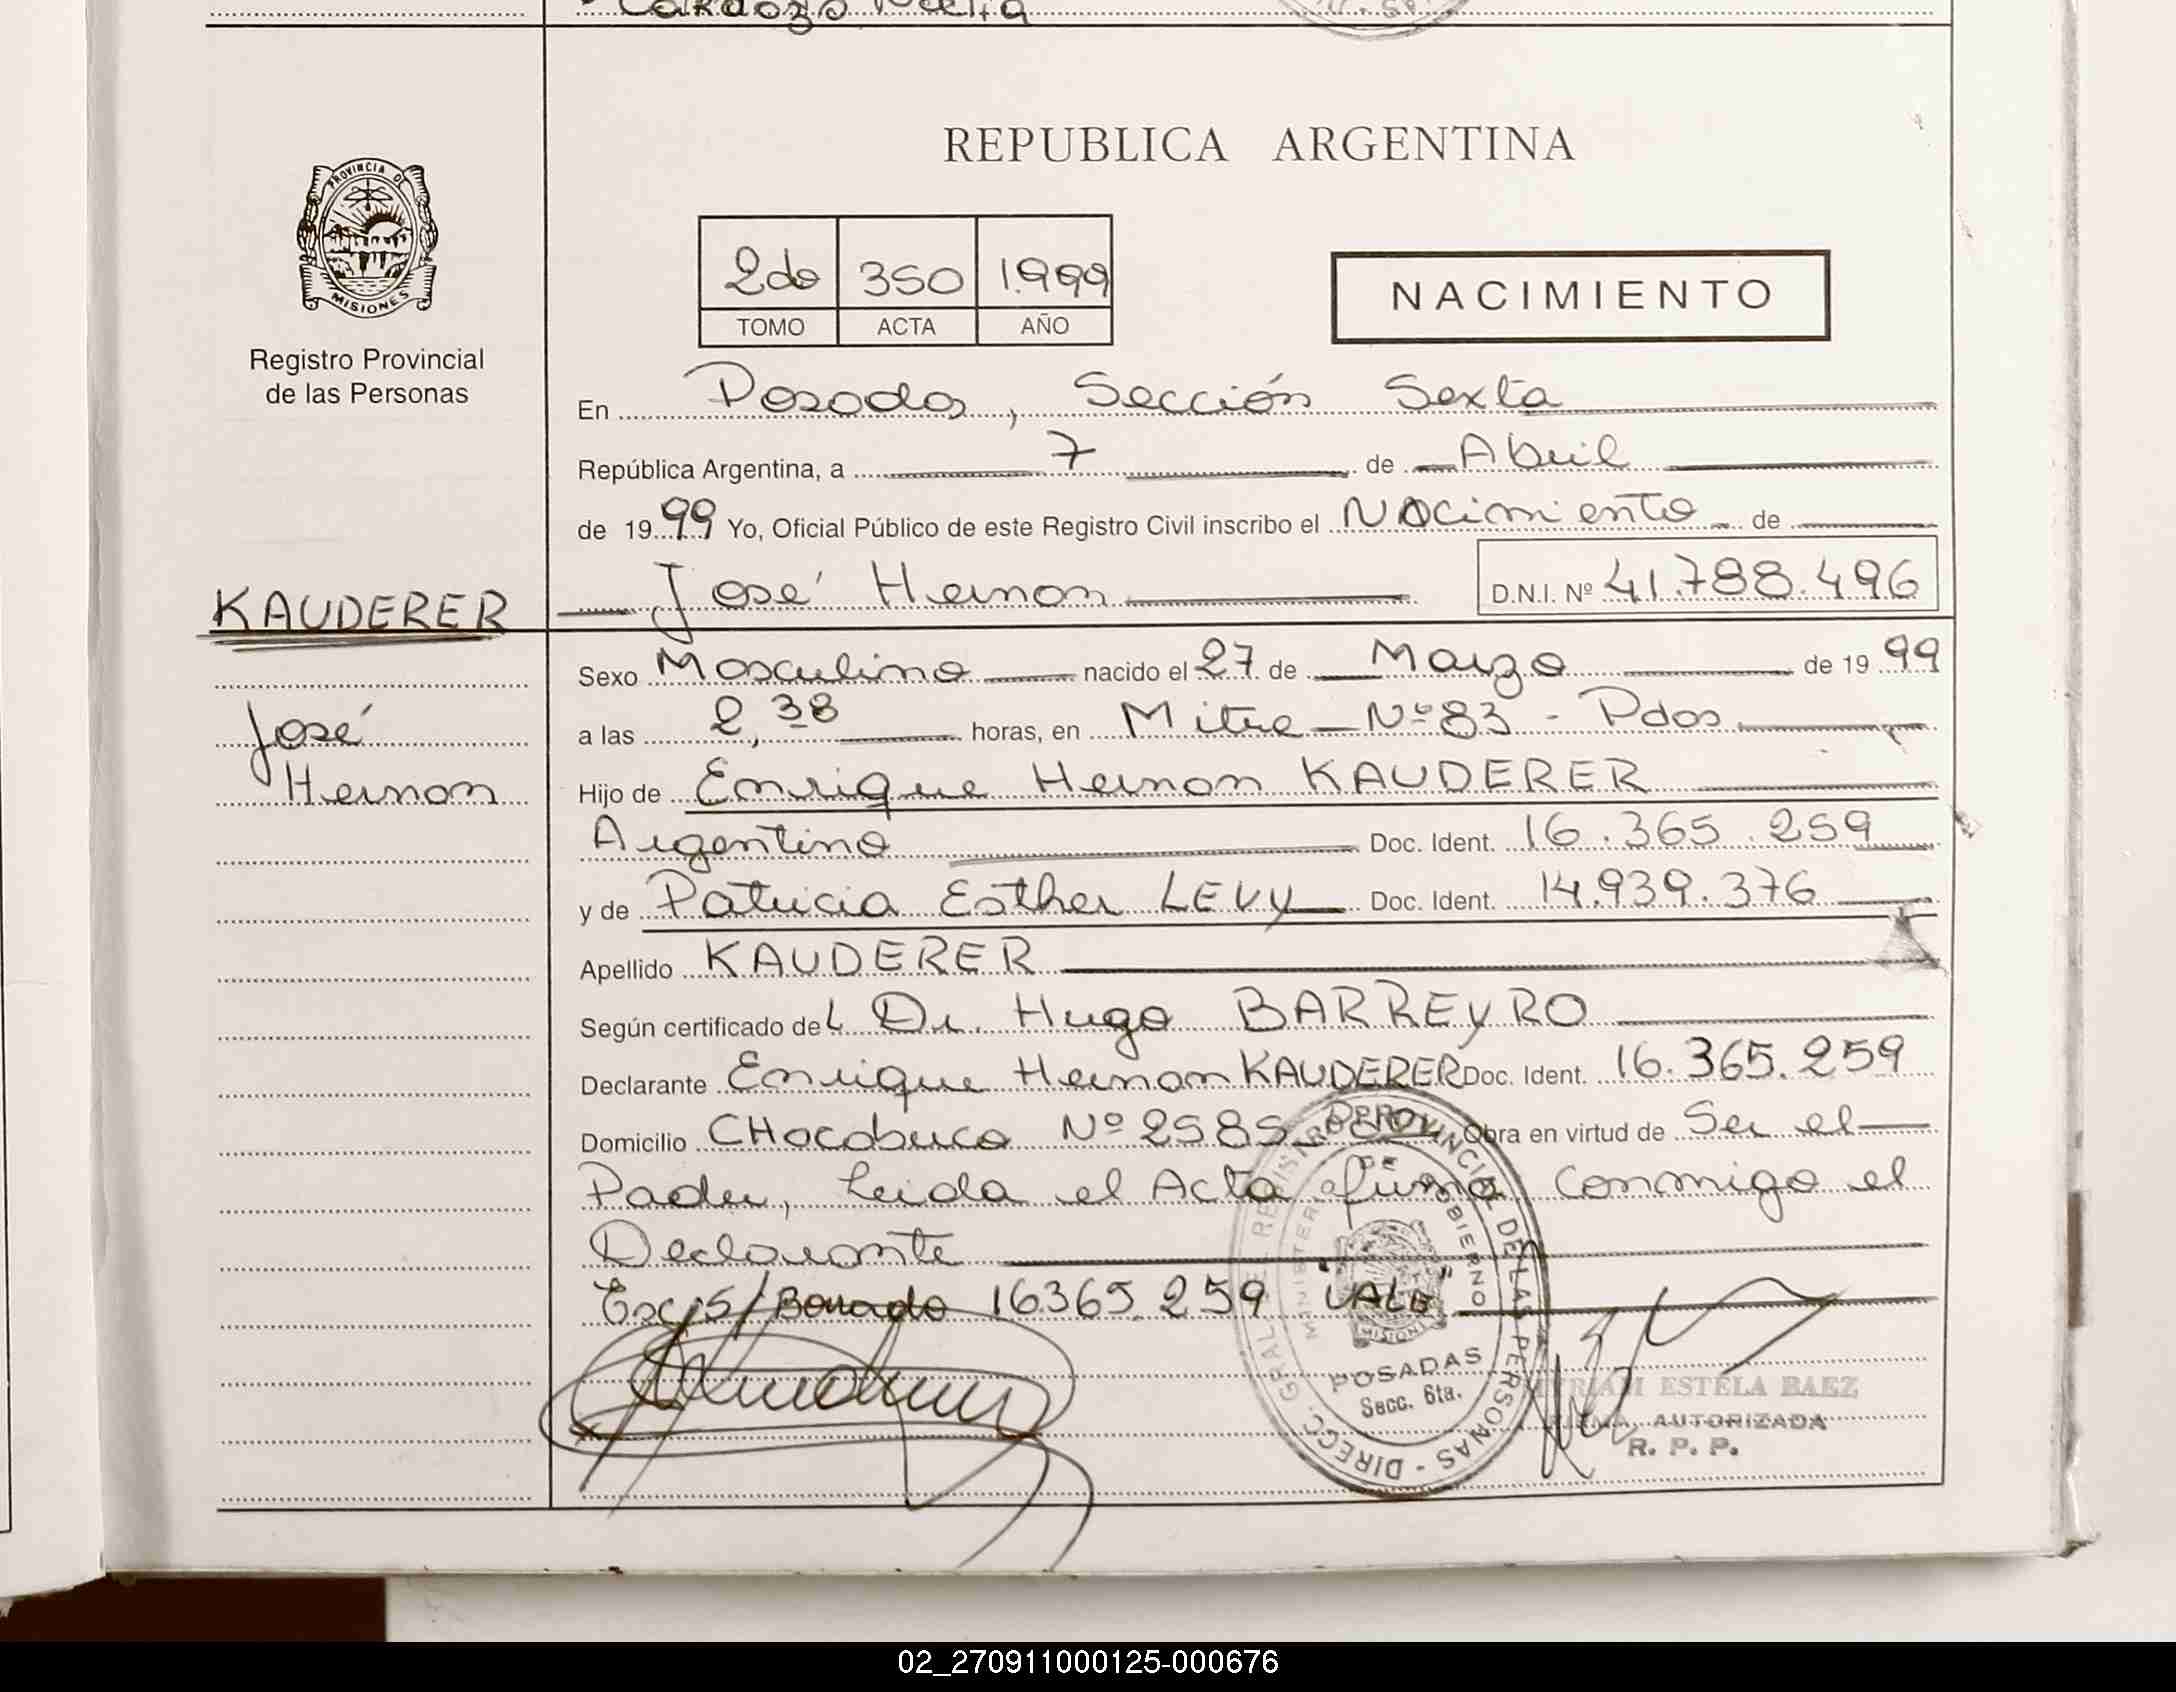 Cardozo Delia
REPUBLICA ARGENTINA
PROVINCIA DE
MISIONES
Registro Provincial
de las Personas
2do 350 1.999
TOMO ACTA AÑO
NACIMIENTO
En Posadas, Sección Sexta
República Argentina, a 7 de Abril
de 1999 Yo, Oficial Público de este Registro Civil inscribo el Nacimiento de
José Hernan D.N.I. Nº 41.788.496
KAUDERER
José
Hernan
Sexo Masculino nacido el 27 de Marzo de 1999
a las 2,38 horas, en Mitre Nº 83 - Pdas
Hijo de Enrique Hernan KAUDERER
Argentino Doc. Ident. 16.365.259
y de Patricia Esther LEVY Doc. Ident. 14.939.376
Apellido KAUDERER
Según certificado del Dr. Hugo BARREYRO
Declarante Enrique Hernan KAUDERER Doc. Ident. 16.365.259
Domicilio CHacabuco Nº 2585 Obra en virtud de Ser el
Padre, leida el Acta firma conmigo el
Declarante
Esc/s/Borrado 16365.259 "VALE"
DIRECC. GRAL. DE REGISTRO PROVINCIAL DE LAS PERSONAS
MINISTERIO DE GOBIERNO
MISIONES
POSADAS
Secc. 6ta.
MYRIAM ESTELA BAEZ
FIRMA AUTORIZADA
R. P. P.
02_270911000125-000676